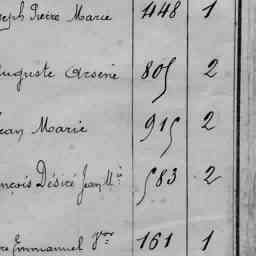 seph Pierre Marie 448 1
uguste Arsène 805 2
ean Marie 915 2
nçois Désiré Jean M.ie 583 2
re Emmanuel 161 1